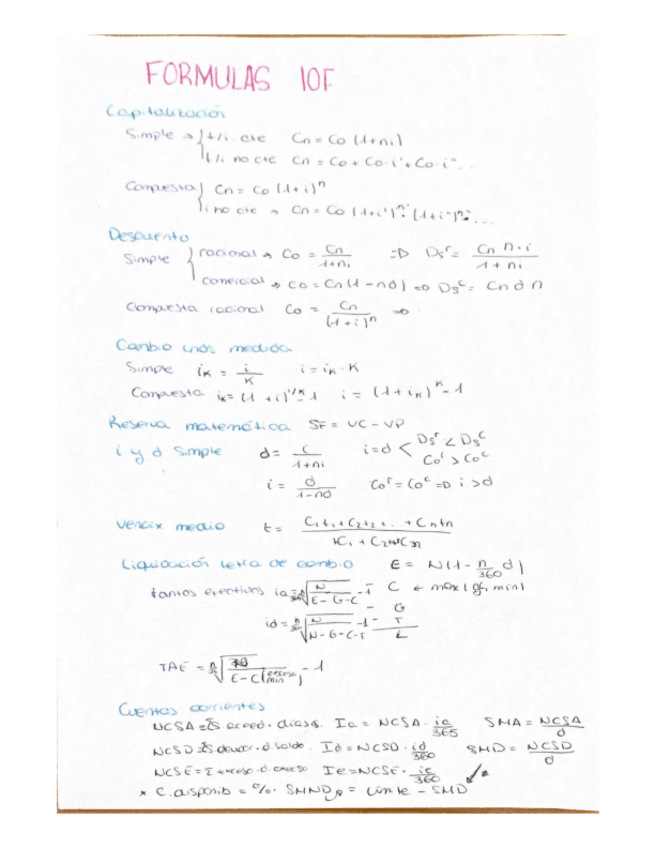 FORMULAS IOF
Capitalización
Simple → { t/i cte Cn = Co (1+ni)
t/i no cte Cn = Co + Co·i' + Co·i''...
Compuesta } Cn = Co (1+i)^n
i no cte → Cn = Co (1+i')^n' · (1+i'')^n''...
Descuento
Simple { racional → Co = Cn / 1+ni => Ds^r = Cn n·i / 1+ni
comercial → Co = Cn (1-nd) => Ds^c = Cn d n
Compuesta racional Co = Cn / (1+i)^n =>
Cambio unos medida
Simple iK = i / K i = iK · K
Compuesta iK = (1+i)^1/K - 1 i = (1+iK)^K - 1
Reserva matemática SF = VC - VP
i y d Simple d = i / 1+ni i=d < Ds^r < Ds^c
Co^r > Co^c
i = d / 1-nd Co^r = Co^c => i > d
Vencix medio t = C1t1 + C2t2 + ... + Cntn / C1 + C2 + Cn
Liquidación letra de cambio E = N (1 - n/360 d)
tantos efectivos ia = √ N / E-G-C - 1 C ← max (%, min)
- G
id = √ N / N-G-C-T - 1 - T
L
TAE = √ N / E-C (exceso min) - 1
Cuentas corrientes
NCSA = Σ acreed · dias s. Ia = NCSA · ia/365 SMA = NCSA / d
NCSD = Σ deudor · d saldo. Id = NCSD · id/360 SMD = NCSD / d
NCSE = Σ exceso · d exceso Ie = NCSE · ie/360
* C. disponib = %· SMND = límite - SMD